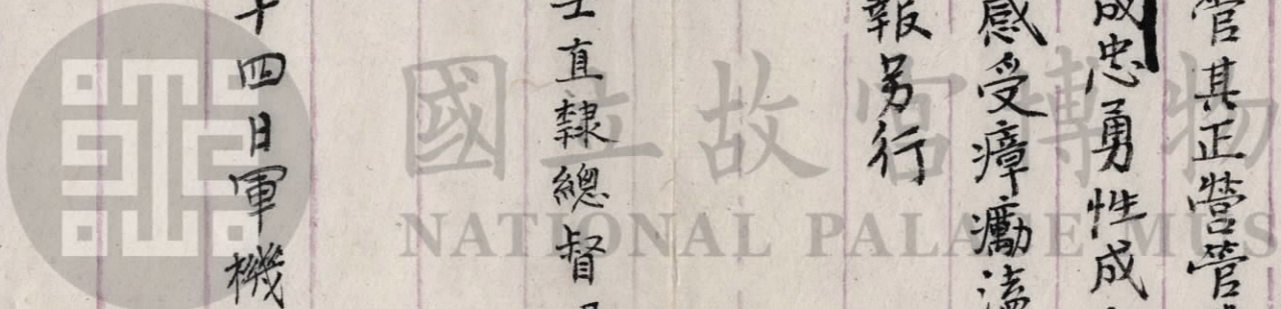 管其正營管
成忠勇性成
感受瘴癘溘
報另行
士直隸總督
十四日軍機
國立故宮博物
NATIONAL PALACE MUS